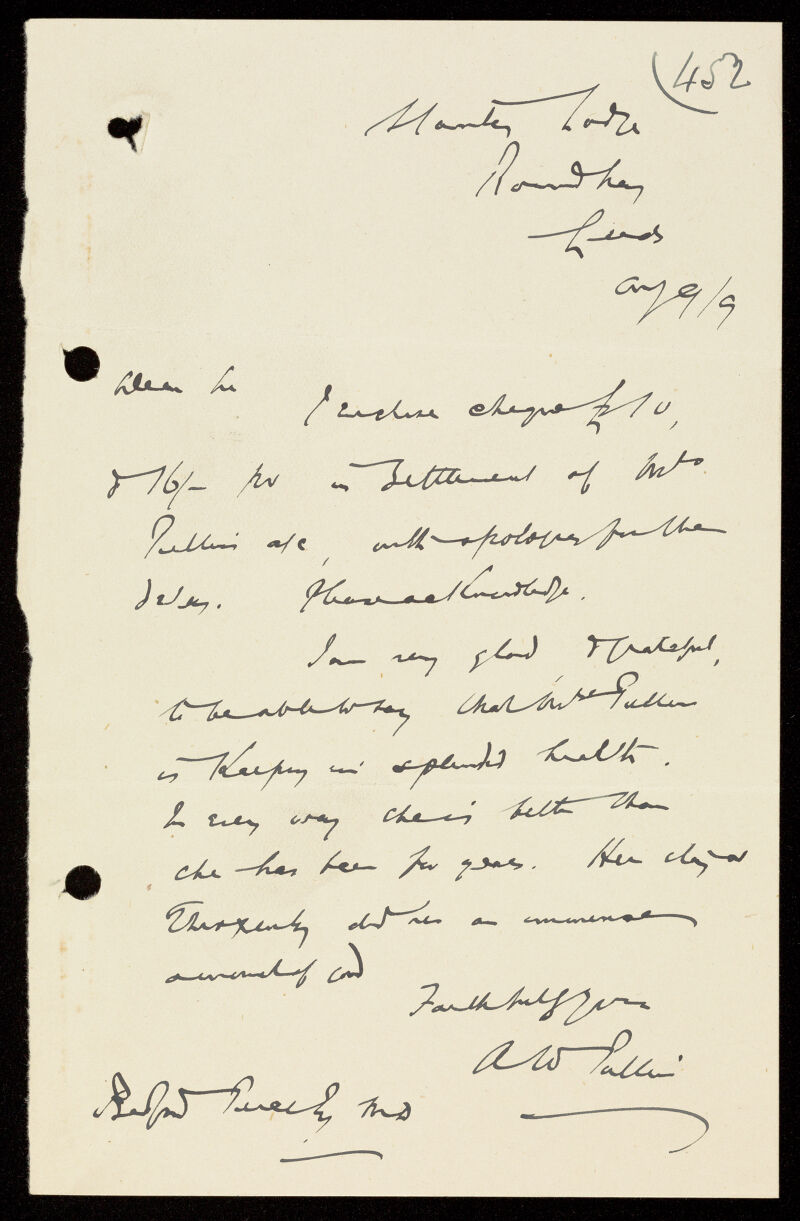 452
Lodge
Roundhay
Leeds
Aug 9/9
Dear Sir
I enclose cheque £10,
& 16/- in settlement of Mrs
Pullin's a/c, with apologies for the
delay. Please acknowledge.
I am very glad, & grateful,
to be able to say that Mrs Pullin
is keeping in splendid health.
In every way she is better than
she has been for years. Her stay at
did her an immense
amount of good
Faithfully yours
A W Pullin
Bedford Pierce Esq MD